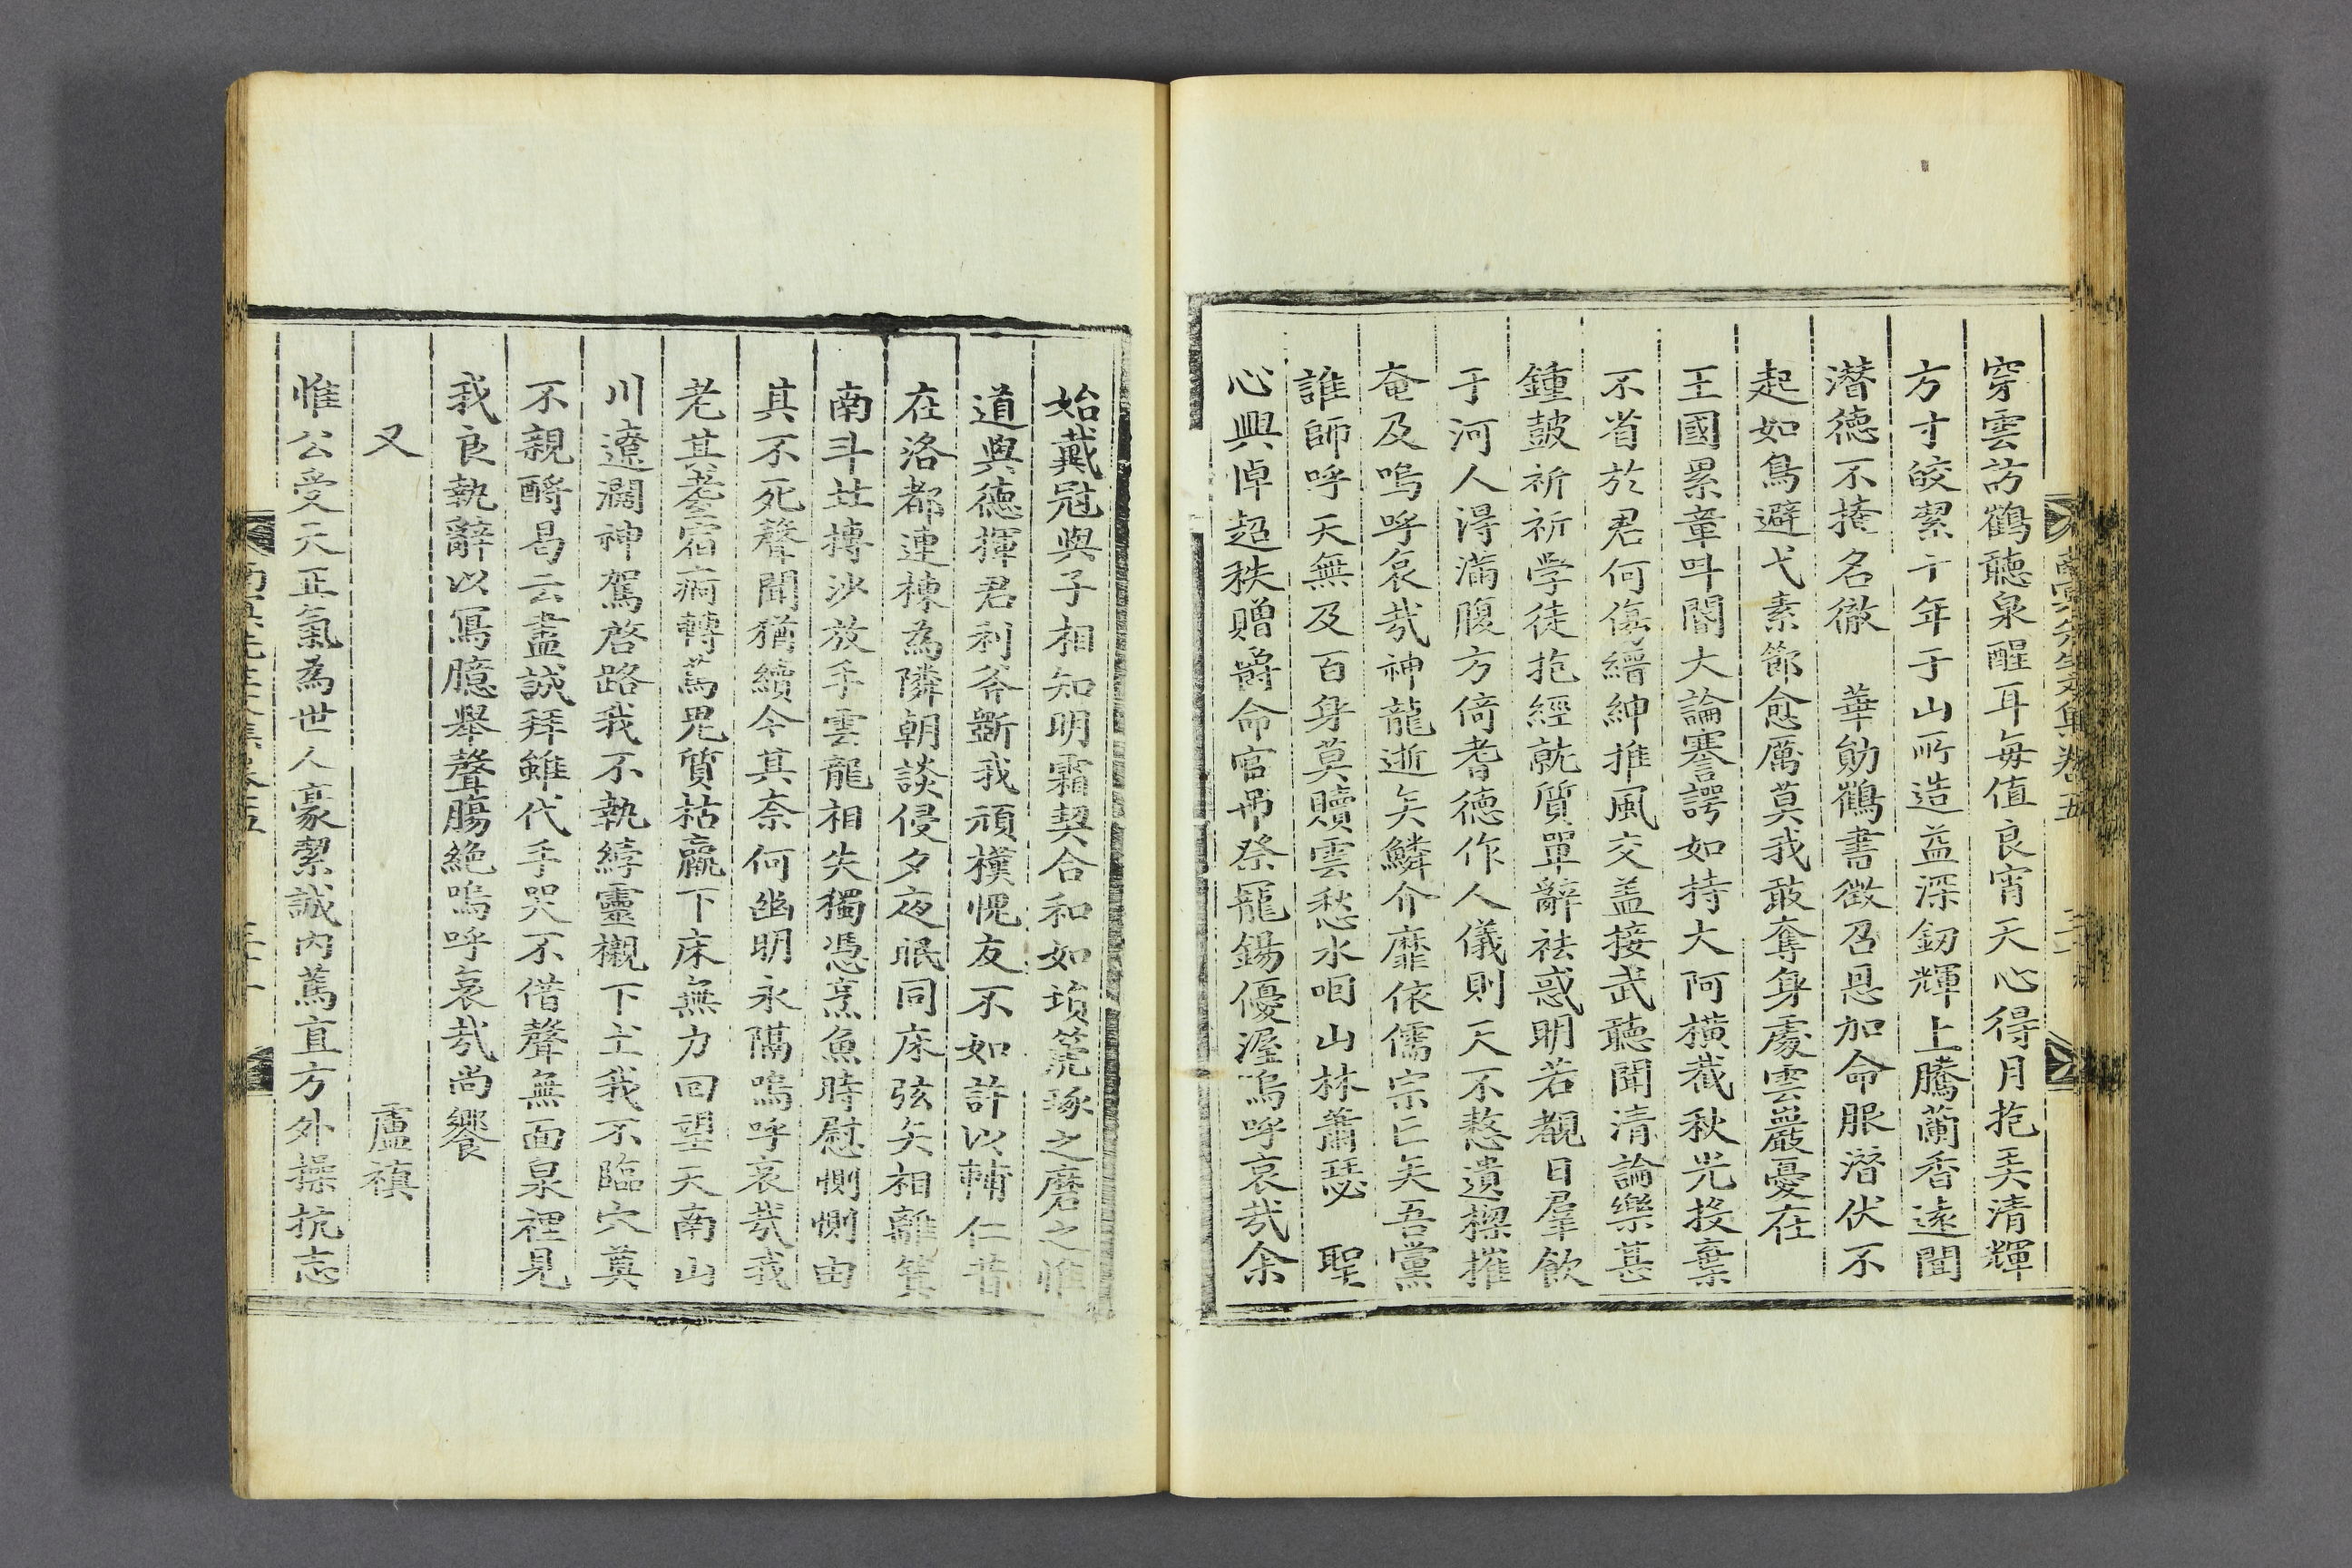 南冥先生文集卷五
穿雲訪鶴聽泉醒耳每值良宵天心得月抱弄清輝
方寸皎潔十年于山所造益深釰輝上騰蘭香遠聞
潛德不掩名徹 華勛鶴書徵召恩加命服潛伏不
起如鳥避弋素節愈厲莫我敢奪身處雲巖憂在
王國累章叫閽大論謇諤如持大阿橫截秋光投棄
不省於君何傷縉紳推風交盖接武聽聞清論樂甚
鍾鼓祈祈學徒抱經就質單辭祛惑明若覩日羣飮
于河人淂滿腹方倚耆德作人儀則天不憖遺樑摧
奄及嗚呼哀㢤神龍逝矣鱗介靡依儒宗已矣吾黨
誰師呼天無及百身莫贖雲愁水咽山林蕭瑟 聖
心興悼超秩贈爵命官弔祭寵錫優渥嗚呼哀㢤余
始戴冠與子相知明霜契合和如塤箎琢之磨之惟
道與德揮君利斧斲我頑樸愧友不如許以輔仁昔
在洛都連棟為隣朝談侵夕夜眠同床弦矢相離箕
南斗北摶沙放手雲龍相失獨憑烹魚時慰惻惻由
其不死聲聞猶續今其奈何幽明永隔嗚呼哀㢤我
老甚耋宿痾轉蔿昆質枯羸下床無力回望天南山
川遼濶神駕啓路我不執綍靈櫬下土我不臨穴奠
不親酹曷云盡誠拜雖代手哭不借聲無面泉裡見
我良執辭以寫臆舉聲膓絶嗚呼哀㢤尚饗
又 盧禛
惟公受天正氣為世人豪潔誠內蔿直方外操抗志